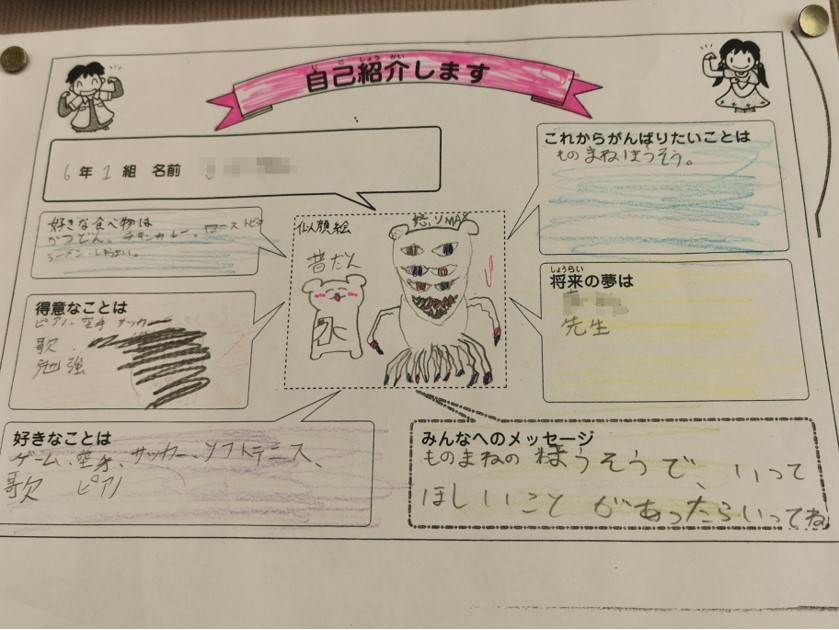 じ こ しょう かい
自己紹介します
6年1組 名前
これからがんばりたいことは
ものまねほうそう。
好きな食べ物は
かつどん、チキンカレー、
ラーメン
似顔絵
普だん
水
怒りMAX
得意なことは
ピアノ、空手 サッカー
歌、
勉強
しょうらい
将来の夢は
先生
好きなことは
ゲーム、空手、サッカー、ソフトテニス、
歌 ピアノ
みんなへのメッセージ
ものまねのほうそうで、いって
ほしいことがあったらいってね